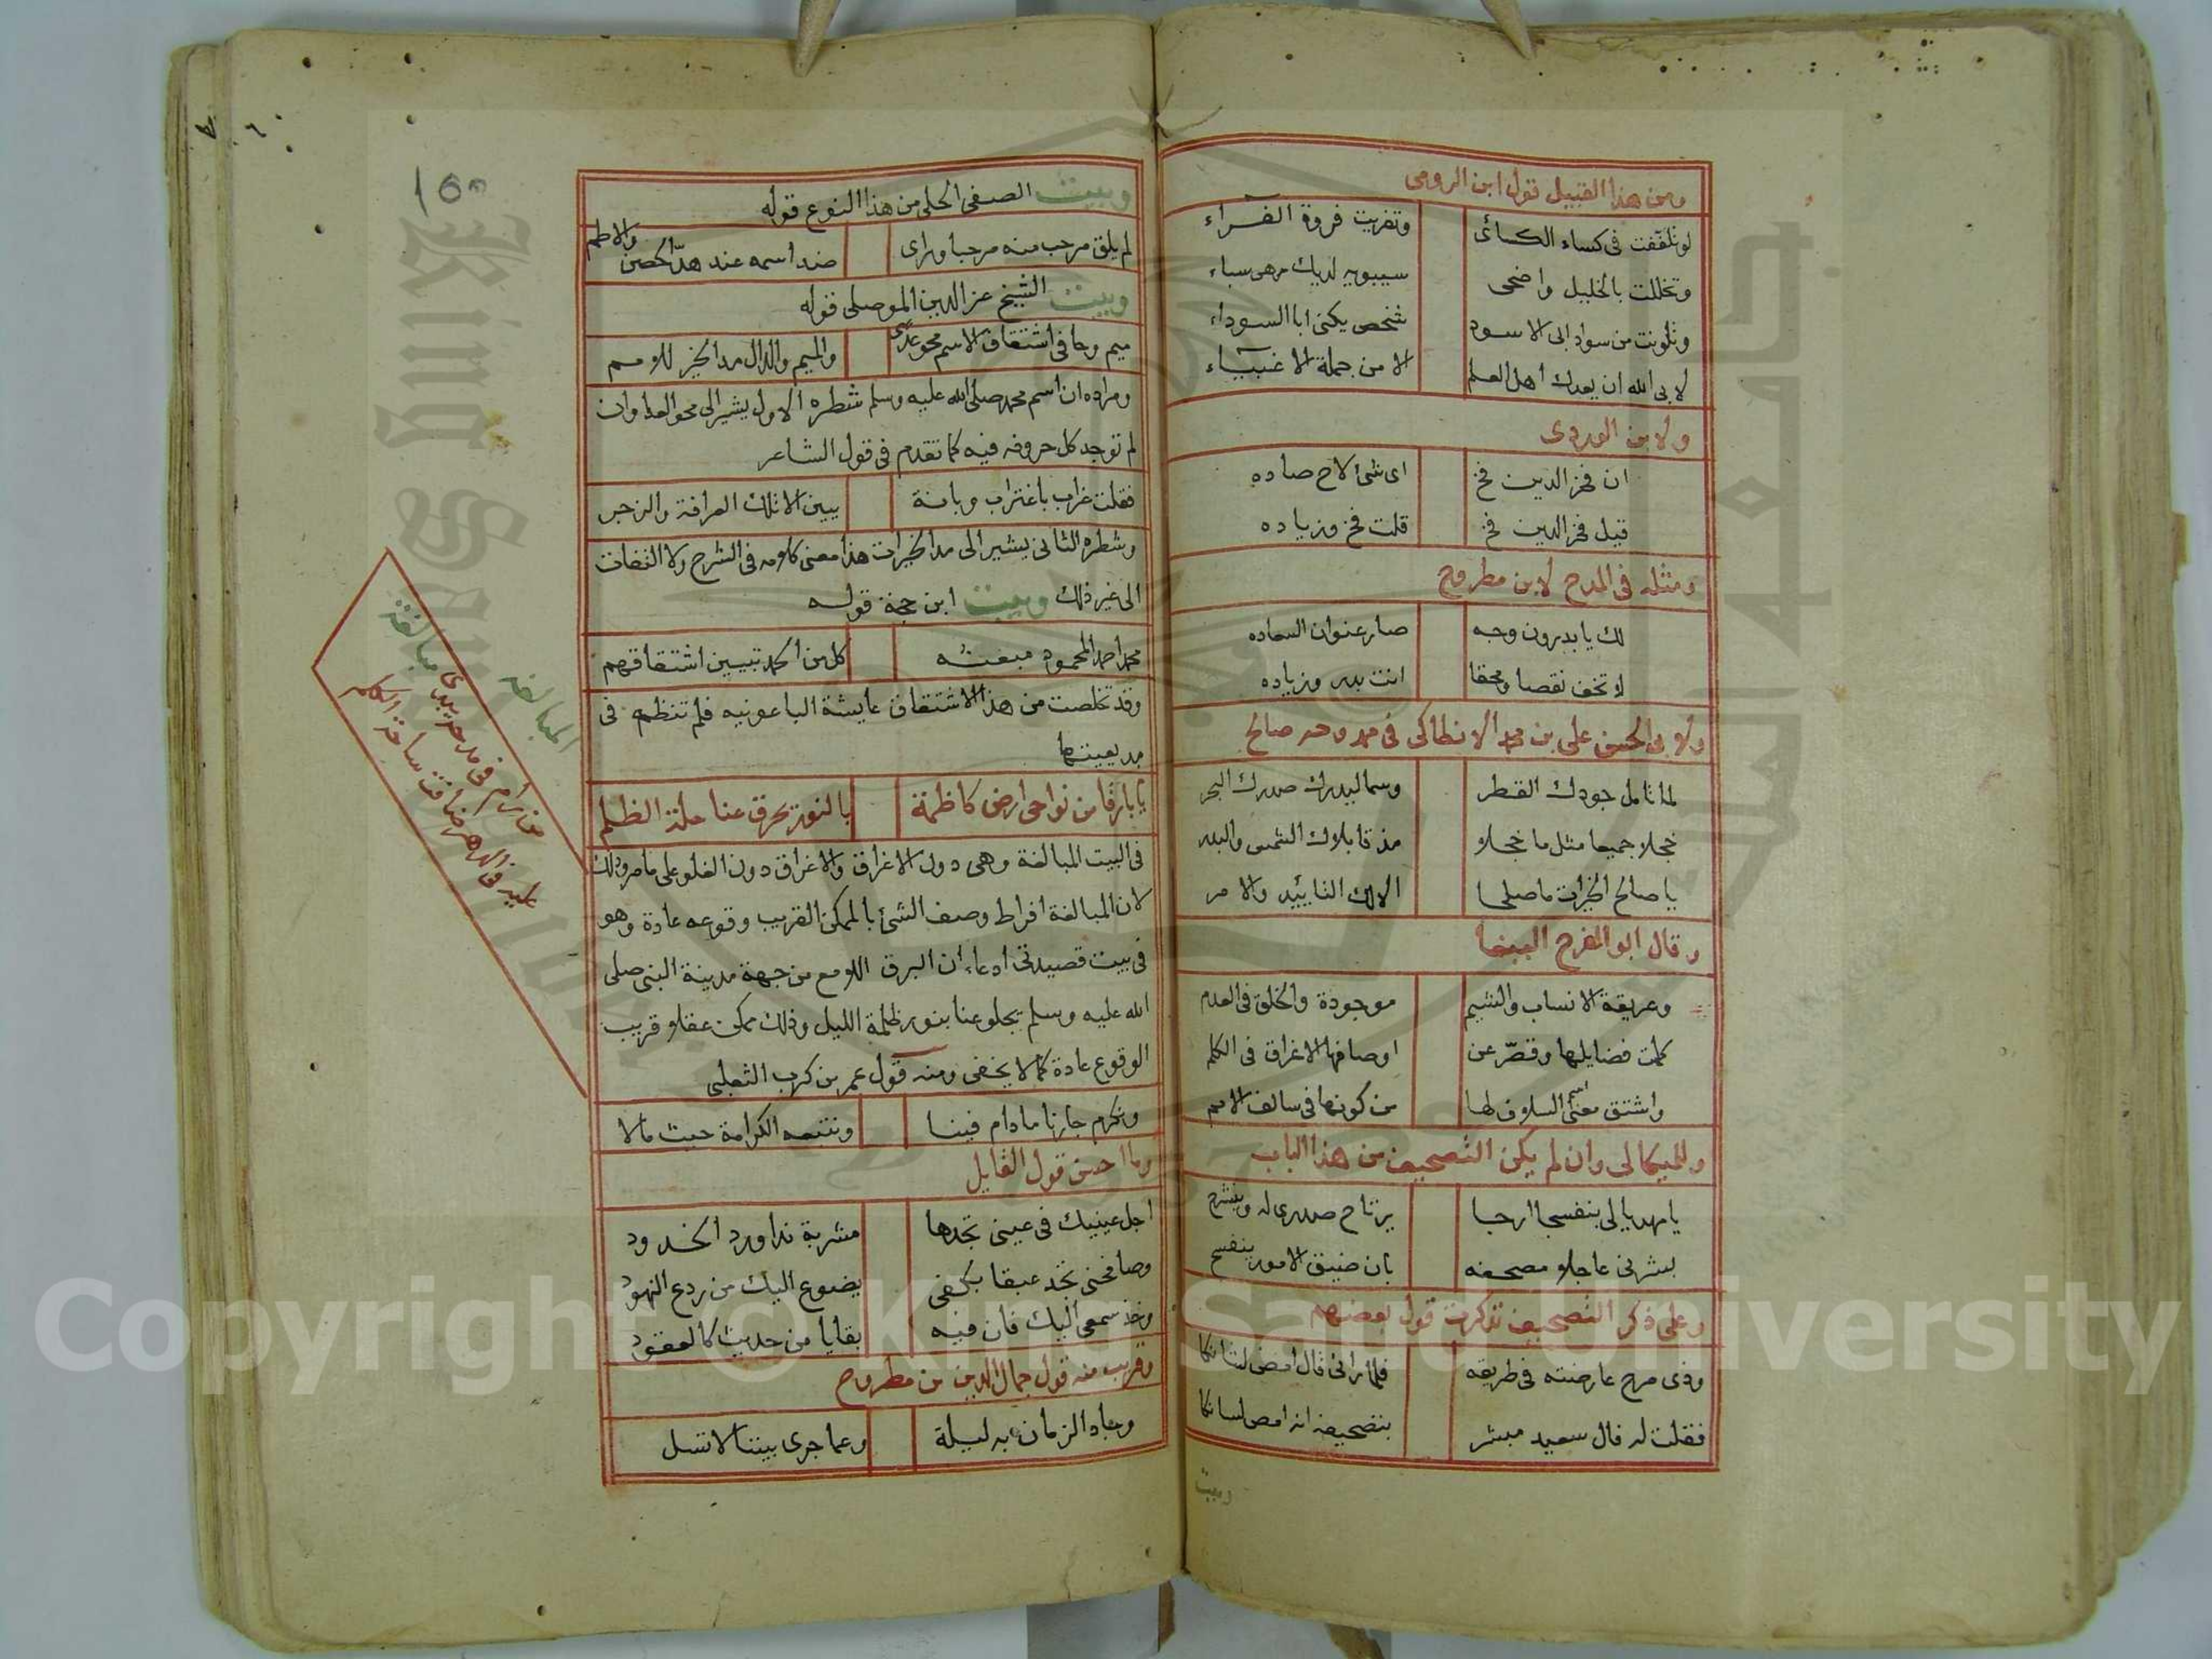 ومن هذا القبيل قول ابن الرومى
لو تلففت فى كساء الكسائى وتفريت فروة الفراء
وتخللت بالخليل واضحى سيبويه لديك رهن سباء
وتلونت من سواد ابى الاسود شخص يكنى ابا السوداء
لابى الله ان يعدك أهل العلم الا من جملة الاغبياء
ولابن الوردى
ان فخر الدين فخ اى شئ لاح صاده
قيل فخر الدين فخ قلت فخ وزياده
ومثله فى المدح لابن مطروح
لك يا بدرون وجه صار عنوان السعاده
لا تخف نقصا ومحقا انت بدر وزياده
ولابى الحسن على بن محمد الانطاكى فى ممدوحه صالح
لما تامل جودك القطر وسما ليدرك صدرك البحر
خجلا جميعا مثل ما خجلا مذ قابلاك الشمس والبدر
يا صالح الخيرات ما صلحا الا لك التاييد والامر
وقال ابو الفرج الببغا
وعريقة الانساب والشيم موجودة والخلق فى العدم
كملت فضايلها وقصّر عن اوصافها الاغراق فى الكلم
واشتق معنى اسم السلاف لها من كونها فى سالف الامم
وللميكالى وان لم يكن التصحيف من هذا الباب
يا مهديا لى بنفسجا ارجا يرتاح صدرى له وينشرح
بشرنى عاجلا مصحفه بان ضيق الامور ينفسح
وعلى ذكر التصحيف تذكرت قول بعضهم
وذى مرح عارضته فى طريقه فلما رانى قال امض لشانكا
فقلت له فال سعيد مبشر بتصحيفه انه امص لسانكا
وبيت
وبيت الصفى الحلى من هذا النوع قوله
لم يلق مرحب منه مرحبا وراى ضد اسمه عند هدّ الحصن والاطم
وبيت الشيخ عز الدين الموصلى قوله
ميم وحا فى اشتقاق الاسم محو عدى والميم والدال مد الخير للامم
ومراده ان اسم محمد صلى الله عليه وسلم شطره الاول يشير الى محو العدا وان
لم توجد كل حروفه فيه كما تقدم فى قول الشاعر
فقلت غراب باغتراب وبانة ببين الا تلك العرافة والزجر
وشطره الثانى يشير الى مد الخيرات هذا معنى كلامه فى الشرح ولا التفات
الى غير ذلك وبيت ابن حجة قوله
محمد احمد المحمود مبعثه كل من الحمد تبيين اشتقاقهم
وقد تخلصت من هذا الاشتقاق عايشة الباعونيه فلم تنظمه فى
بديعيتها
يا بارقا من نواحى ارض كاظمة بالنور يحرق عنا حلة الظلم
فى البيت المبالغة وهى دون الاغراق والاغراق دون الغلو على ما مر وذلك
لان المبالغة افراط وصف الشئ بالممكن القريب وقوعه عادة وهو
فى بيت قصيدتى ادعاء ان البرق اللامع من جهة مدينة النبى صلى
الله عليه وسلم يجلو عنا بنوره ظلمة الليل وذلك ممكن عقلا قريب
الوقوع عادة كما لا يخفى ومنه قول عمر بن كرب الثعلبى
ونكرم جارنا ما دام فينا ونتبعه الكرامة حيث مالا
وما احسن قول القايل
اجل عينيك فى عينى تجدها مشربة ندا ورد الخدود
وصافحنى تجد عبقا بكفى يضوع اليك من ردع النهود
وخذ سمعى اليك فان فيه بقايا من حديث كالعقود
وقريب منه قول جمال الدين بن مطروح
وجاد الزمان به ليلة وعما جرى بيننا لا تسل
المبالغه
مبالغة